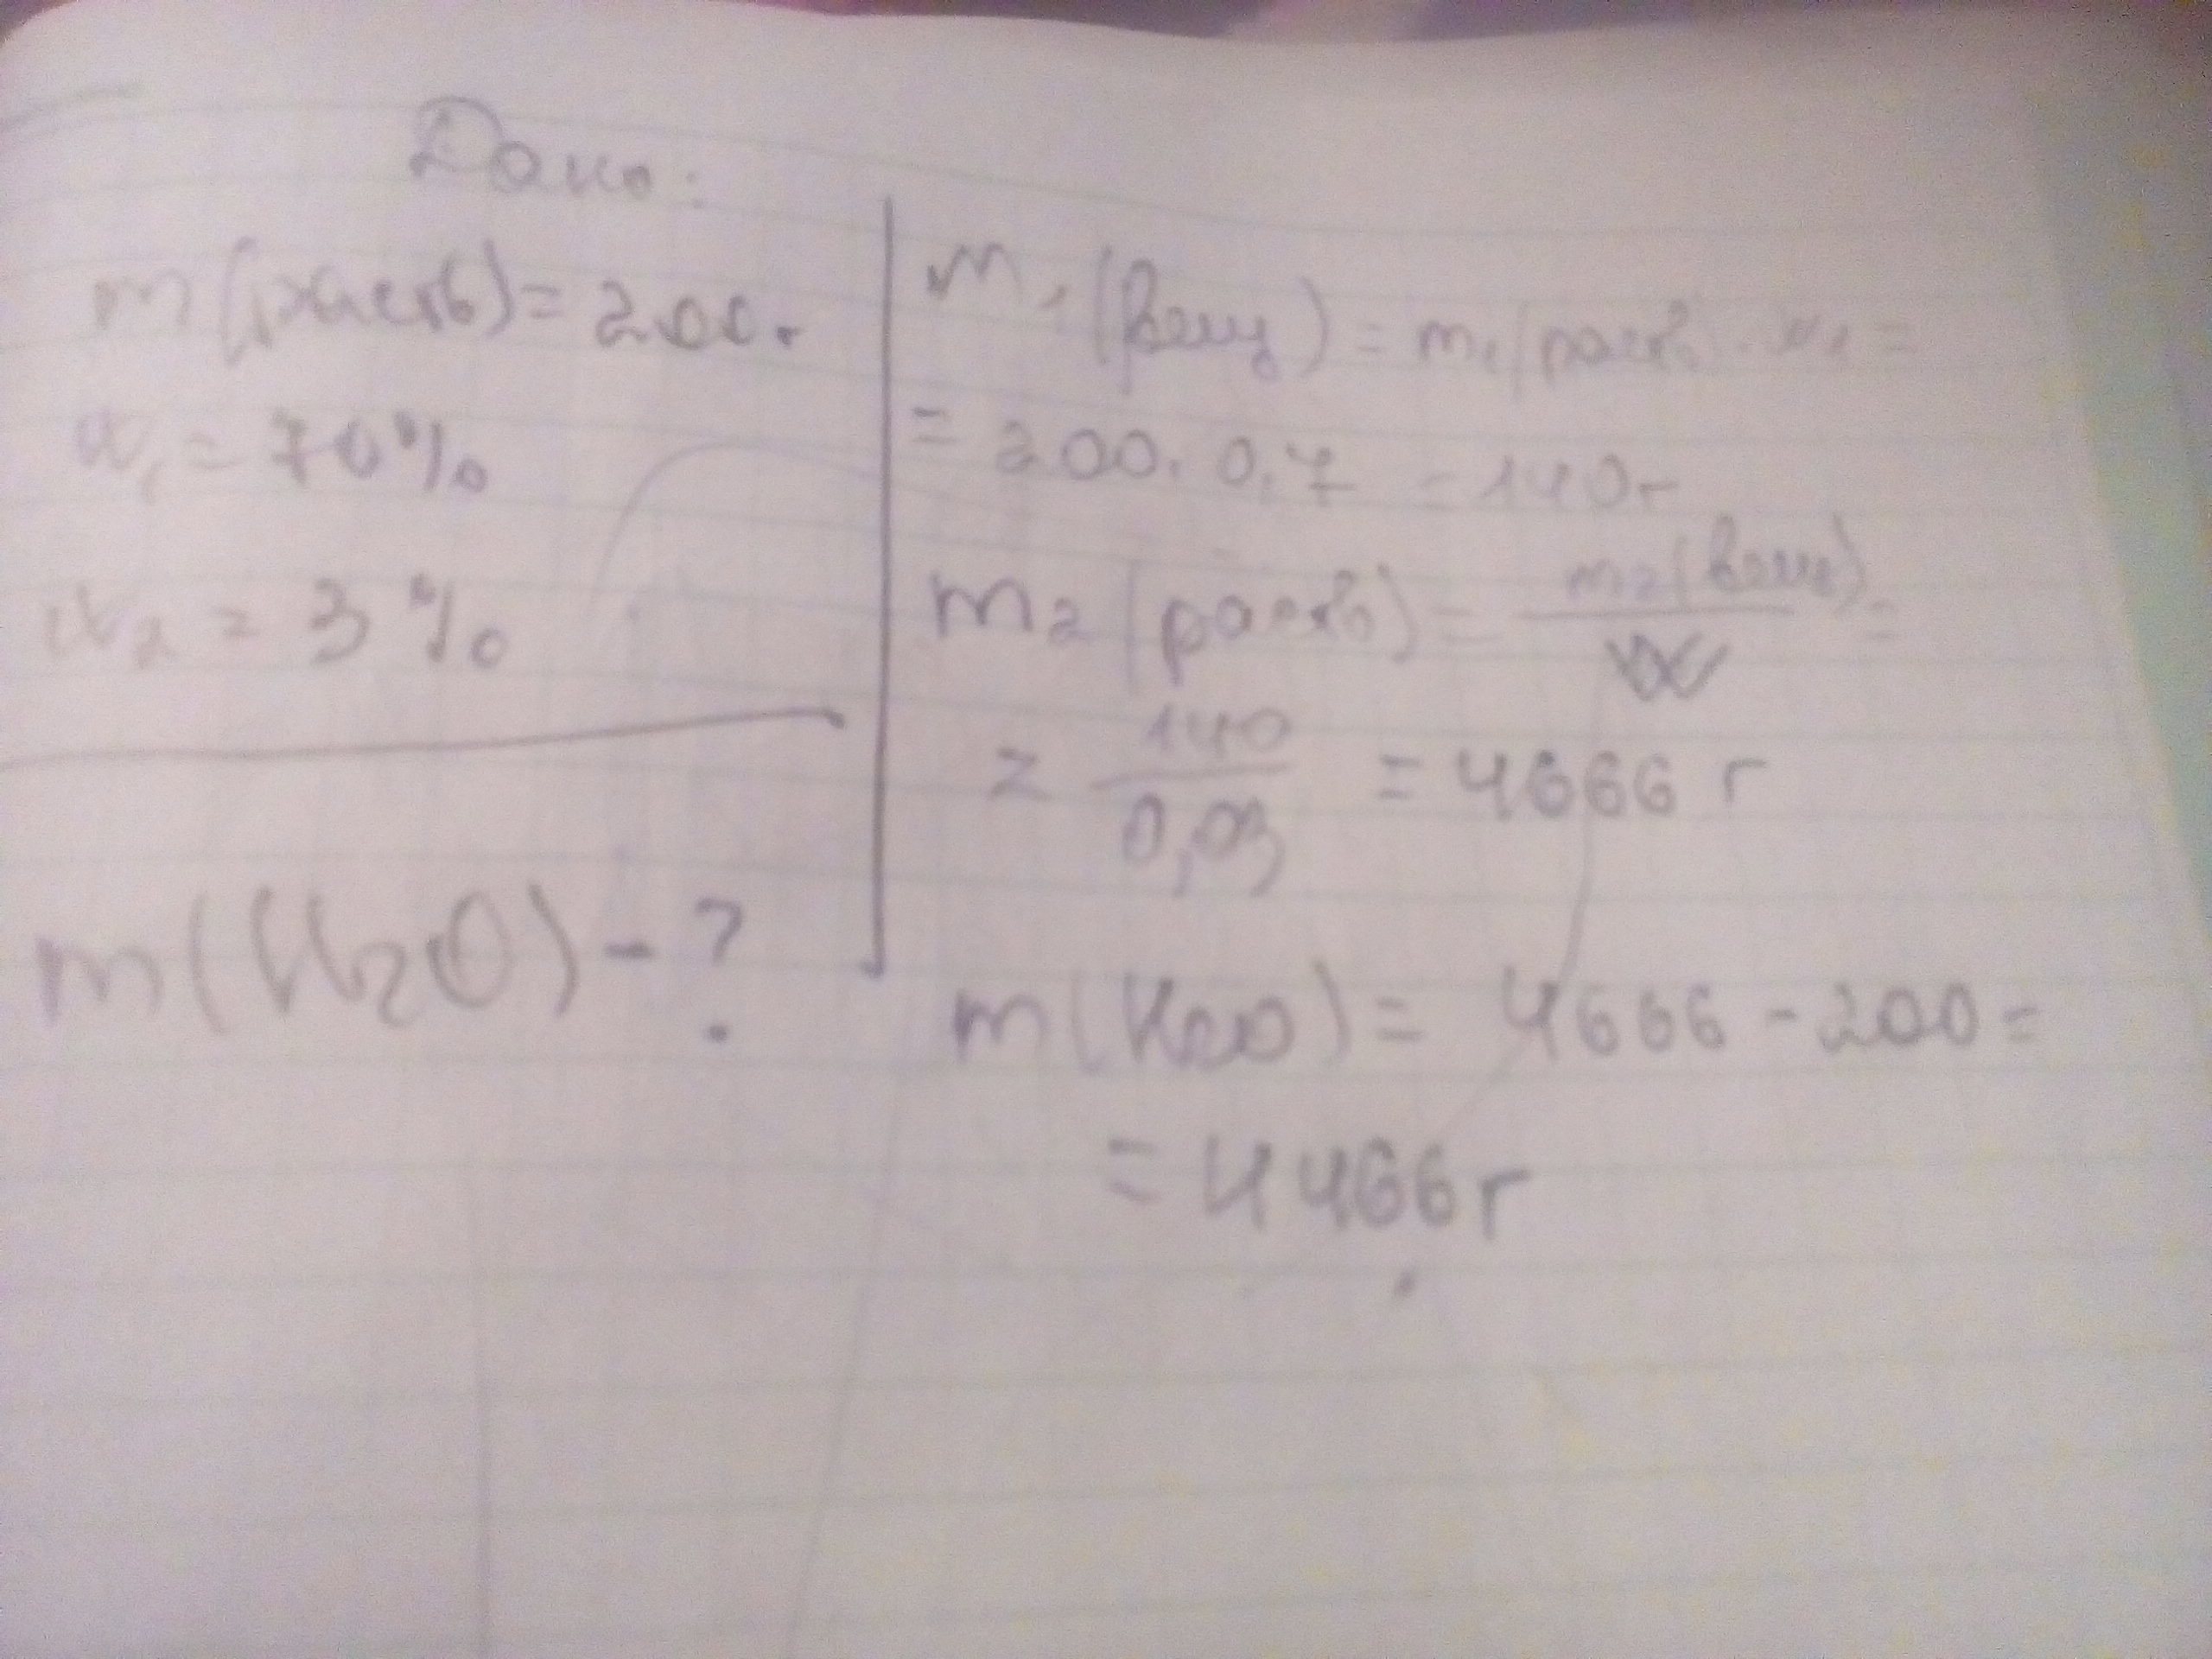 Дано:
m(раств)=200г
w₁=70%
w₂=3%
m(H₂O)-?
m₁(вещ)=m₁(раств.·w₁=
=200·0,7=140г
m₂(раств)=m₂(вещ)/w=
=140/0,03=4666г
m(H₂O)=4666-200=
=4466г